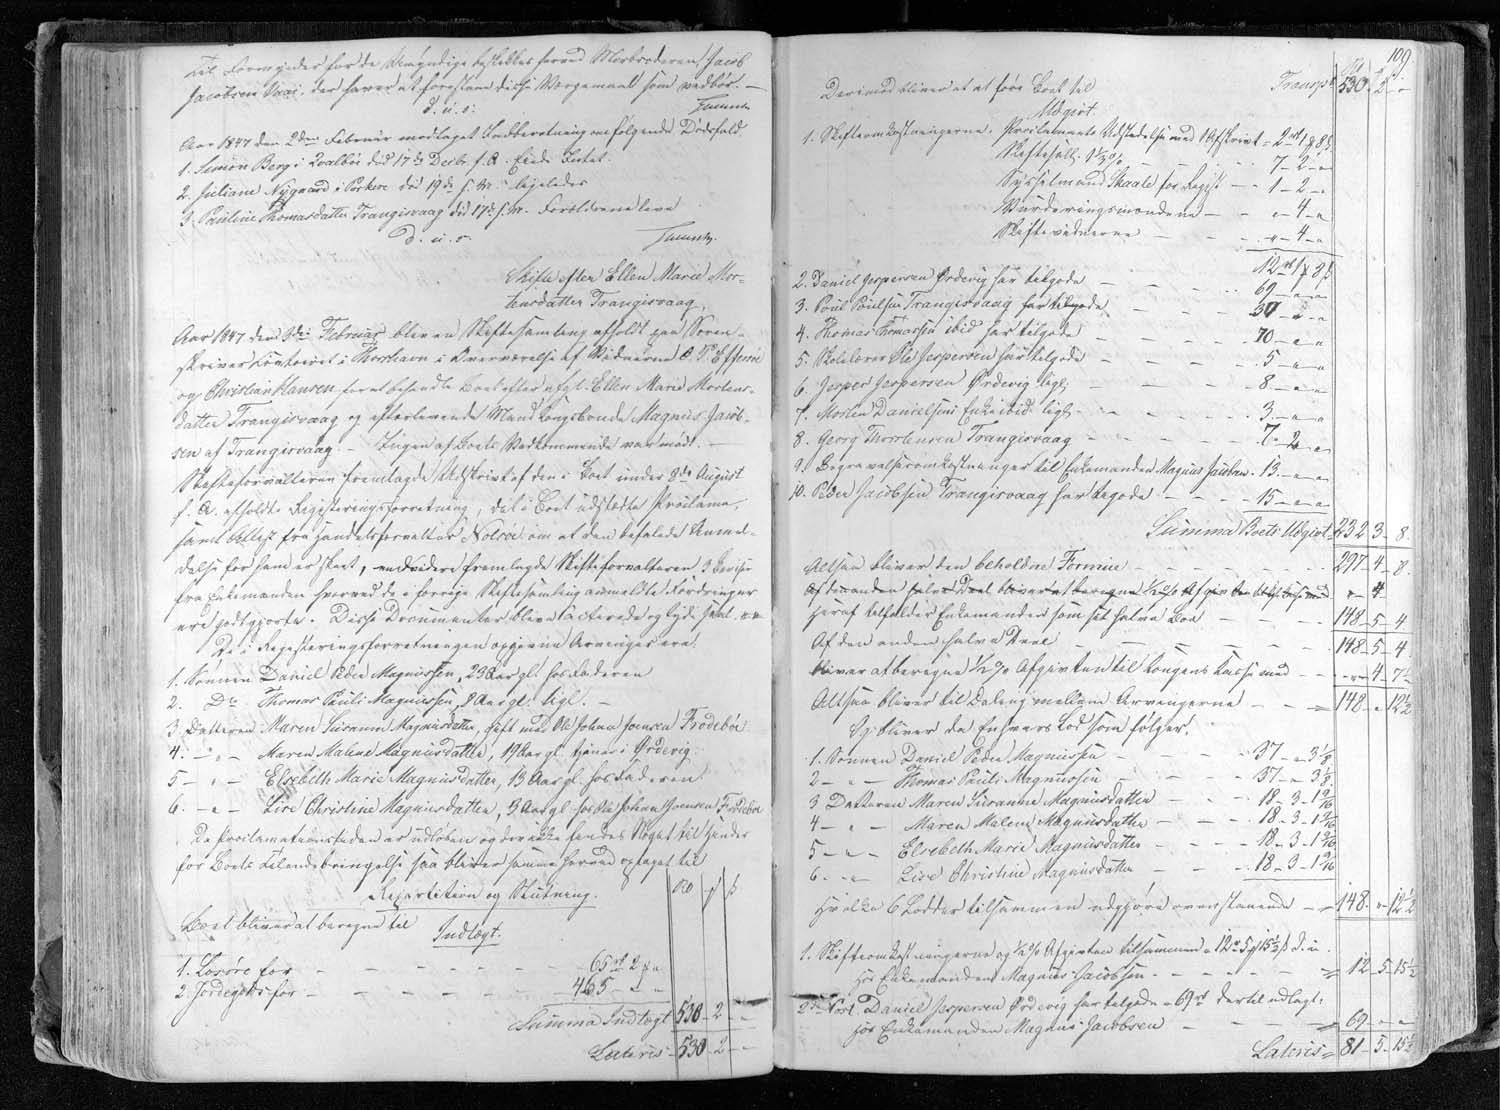 til Formynder for de Umyndige beskikkes herved Morbroderen Jacob
Jacobsen Vaag, der haver at forestaae disse Værgemaal som vedbør. —
D. u. s.
Aar 1847 den 2den Februar modtaget Indberetning om følgende Dødsfald
1. Simon Berg i Qvalbøe død 17de Decbr. f. A. Eiede Intet.
2. Juliane Nygaard i Porkere død 19de f. M. ligeledes
3. Pauline Thomasdatter Trangisvaag død 17de f. M. Forældrene leve
D. u. s.
Skifte efter Ellen Marie Mor-
tensdatter Trangisvaag.
Aar 1847 den 3die Februar blev en Skiftesamling afholdt paa Soren-
skriver Contoiret i Thorshavn i Overværelse af Vidnerne
og Christian Hansen for at behandle Boet efter afgl. Ellen Marie Mortens-
datter Trangisvaag og efterlevende Mand Kongsbonde Magnus Jacob-
sen af Trangisvaag. — Ingen af Boets Vedkommende var mødt. —
Skifteforvalteren fremlagde Udskrivt af den i Boet under 8de August
f. A. afholdte Registeringsforretning, det i Boet udstædte Proclama,
samt Attest fra Handelsforvalter Nolsøe om at den befalede Anmel-
delse for ham er skeet, endvidere fremlagde Skifteforvalteren 3 Beviser
fra Enkemanden hvorved de i forrige Skiftesamling anmeldte Fordringer
ere godtgjorte. Disse Documenter bleve acterede og lyde saal.
De i Registeringsforretningen opgivne Arvinger ere:
1. Sønnen Daniel Peder Magnussen, 23 Aar gl. hos Faderen
2. Do Thomas Pauli Magnussen, 8 Aar gl. ligl. —
3 Datteren Maren Susanne Magnusdatter, gift med Ole Johan Joensen Frodebøe
4. — " — Maren Malene Magnusdatter, 19 Aar gl. tjener i Ørdevig.
5 — " — Elsebeth Marie Magnusdatter, 13 Aar gl. hos Faderen.
6. — " — Lise Christine Magnusdatter, 3 Aar gl. hos Ole Johan Joensen Frodebøe
Da Proclamationstiden er udløben og der ikke findes Noget til Hinder
for Boets Tilendebringelse saa bliver samme herved optaget til
Repartition og Slutning.
Boet bliver at beregne til
Indtægt.
1. Løsøre for — 65 rd 2 " "
2. Jordegods for — 465 — " "
Summa Indtægt 530 — 2 — "
Lateris 530 — 2 — "
109.
Transpt 530 — 2 — "
Derimod bliver at at føre Boet til
Udgivt.
1. Skifteomkostningerne. Proclamaets Udstedelse med 1 Afskrivt = 2 rd 1 8 ß
Skiftesall. 1 1/3 % — 7 — 2 — "
Sysselmand Skaale for Regist — 1 — 2 — "
Vurderingsmændene — " — 4 — "
Skiftevidnerne — " — 4 — "
12 rd 1 8 ß
2. Daniel Jespersen Ørdevig har tilgode 69 — " — "
3. Poul Poulsen Trangisvaag har tilgode 30 — " — "
4. Thomas Thomassen ibid har tilgode 70 — " — "
5. Skolelærer Ole Jespersen har tilgode — 5 — " — "
6. Jesper Jespersen Ørdevig ligl. — 8 — " — "
7. Morten Danielsens Enke ibid. ligl. — 3 — " — "
8. Georg Thorstensen Trangisvaag — 7 — 2 — "
9. Begravelsesomkostninger til Enkemanden Magnus Jacobsen 13 — " — "
10. Peder Jacobsen Trangisvaag har tilgode — 15 — " — "
Summa Boets Udgivt 232 — 3 — 8.
Altsaa bliver den beholdne Formue — 297 — 4 — 8.
Heraf tilfalder Enkemanden som sit halve Boe — 148 — 5 — 4
Af den anden halve Deel — 148 — 5 — 4.
bliver at beregne 1/2 % Afgivten til Kongens Kasse med — " — 4 — 7 1/2
Altsaa bliver til Deling mellem Arvingerne — 148 — " — 12 1/2
og bliver da Enhvers Lod som følger:
1. Sønnen Daniel Peder Magnussen — 37 — " 3 1/8
2 — " — Thomas Pauli Magnussen — 37 — " 3 1/8
3 Datteren Maren Susanne Magnusdatter — 18 — 3 — 1 9/16
4 — " — Maren Malene Magnusdatter — 18 — 3 — 1 9/16
5 — " — Elsebeth Marie Magnusdatter — 18 — 3 — 1 9/16
6. — " — Lise Christine Magnusdatter — 18 — 3 — 1 9/16
Hvilke 6 Lodder tilsammen udgjøre ovenstaaende — 148 — " — 12 1/2
1. Skifteomkostningerne og 1/2 % Afgivten tilsammen = 12 rd 5 15 1/2 ß
hos Enkemanden Magnus Jacobsen — 12 — 5 — 15 1/2
2de Post. Daniel Jespersen Ørdevig har tilgode = 69 rd dertil udlagt:
hos Enkemanden Magnus Jacobsen — 69 — " — "
Lateris = 81 — 5 — 15 1/2